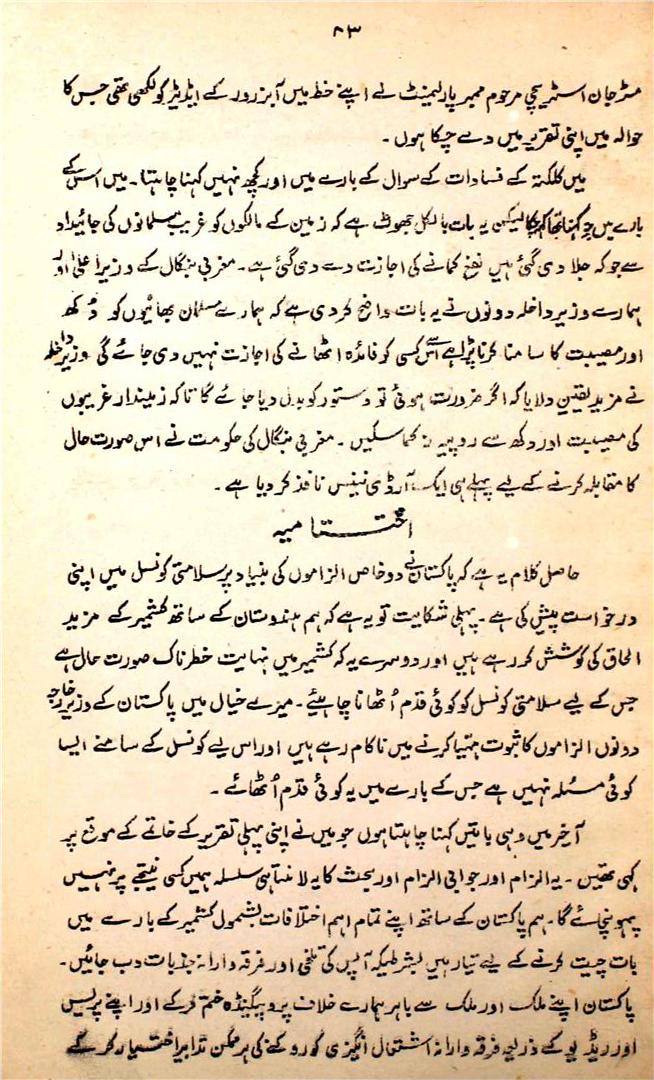 ۸۳
مسٹر جان اسٹریچی مرحوم ممبر پارلیمنٹ نے اپنے خط میں آبزرور کے ایڈیٹر کو لکھی تھی جس کا
حوالہ میں اپنی تقریر میں دے چکا ہوں۔
میں کلکتہ کے فسادات کے سوال کے بارے میں اور کچھ نہیں کہنا چاہتا۔ میں اس کے
بارے میں جو کہنا تھا کہہ چکا لیکن یہ بات بالکل جھوٹ ہے کہ زمین کے مالکوں کو غریب مسلمانوں کی جائیداد
سے جو کہ جلا دی گئی ہیں نفع کمانے کی اجازت دے دی گئی ہے۔ مغربی بنگال کے وزیر اعلیٰ اور
ہمارے وزیر داخلہ دونوں نے یہ بات واضح کر دی ہے کہ ہمارے مسلمان بھائیوں کو دُکھ
اور مصیبت کا سامنا کرنا پڑا ہے اُس سے کسی کو فائدہ اٹھانے کی اجازت نہیں دی جائے گی وزیر داخلہ
نے مزید یقین دلایا کہ اگر ضرورت ہوئی تو دستور کو بدل دیا جائے گا تاکہ زمیندار غریبوں
کی مصیبت اور دکھ سے روپیہ نہ کما سکیں۔ مغربی بنگال کی حکومت نے اس صورت حال
کا مقابلہ کرنے کے لیے پہلے ہی ایک آرڈی نینس نافذ کر دیا ہے۔
اختتامیہ
حاصل کلام یہ ہے کہ پاکستان نے دو خاص الزاموں کی بنیاد پر سلامتی کونسل میں اپنی
درخواست پیش کی ہے۔ پہلی شکایت تو یہ ہے کہ ہم ہندوستان کے ساتھ کشمیر کے مزید
الحاق کی کوشش کر رہے ہیں اور دوسرے یہ کہ کشمیر میں نہایت خطرناک صورت حال ہے
جس کے لیے سلامتی کونسل کو کوئی قدم اُٹھانا چاہیئے۔ میرے خیال میں پاکستان کے وزیر خارجہ
دونوں الزاموں کا ثبوت مہیا کرنے میں ناکام رہے ہیں اور اس لیے کونسل کے سامنے ایسا
کوئی مسئلہ نہیں ہے جس کے بارے میں یہ کوئی قدم اُٹھائے۔
آخر میں وہی باتیں کہنا چاہتا ہوں جو میں نے اپنی پہلی تقریر کے خاتمے کے موقع پر
کہی تھیں۔ یہ الزام اور جوابی الزام اور بحث کا یہ لامتناہی سلسلہ ہمیں کسی نتیجے پر نہیں
پہونچائے گا۔ ہم پاکستان کے ساتھ اپنے تمام اہم اختلافات بشمول کشمیر کے بارے میں
بات چیت کرنے کے لیے تیار ہیں بشرطیکہ آپس کی تلخی اور فرقہ وارانہ جذبات دب جائیں۔
پاکستان اپنے ملک اور ملک سے باہر ہمارے خلاف پروپیگنڈہ ختم کرکے اور اپنے پریس
اور ریڈیو کے ذریعہ فرقہ وارانہ اشتعال انگیزی کو روکنے کی ہر ممکن تدابیر اختیار کر کے